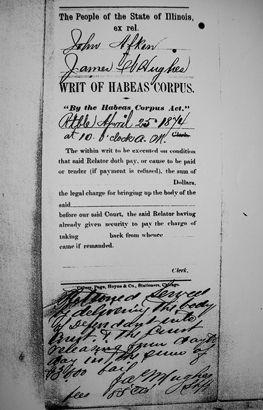 The People of the State of Illinois,
ex rel.
John
vs.
James Hughes
WRIT OF HABEAS CORPUS.
"By the Habeas Corpus Act."
April 25th 1874
at 10. o'clock A.M. Clerk.
The within writ to be executed on condition
that said Relator doth pay, or cause to be paid
or tender (if payment is refused), the sum of
Dollars,
the legal charge for bringing up the body of the
said
before our said Court, the said Relator having
already given security to pay the charge of
taking back from whence
came if remanded.
Clerk.
Page, Hoyne & Co., Stationers, Chicago.
Returned Served
by delivering the body
of Defendant into
Court & the Court
released upon
in the sum of
bail
Jas Hughes
fees